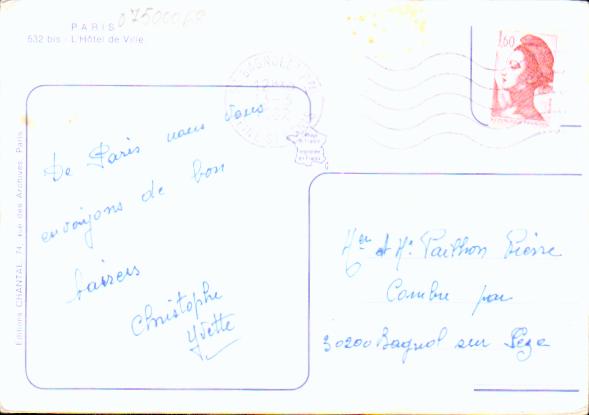 07500068
PARIS
532 bis - L'Hôtel de Ville
1,60
De Paris nous vous
envoyons de bon
baisers
Christophe
Yvette
Editions CHANTAL, 74, rue des Archives, Paris
Mer et Mr Pailhon Pierre
Combe par
30200 Bagnol sur Sèze